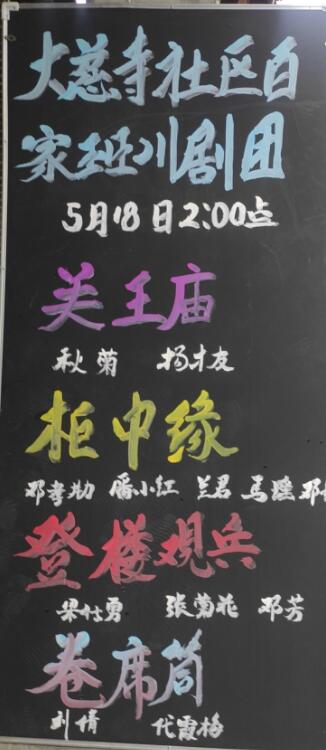 大慈寺社区百
家班川剧团
5月18日2:00点
关王庙
秋菊 扬才友
柜中缘
邓孝勋 潘小红 兰君 马 邓
登楼观兵
梁 勇 张菊花 邓芳
卷席筒
刘倩 代霞梅